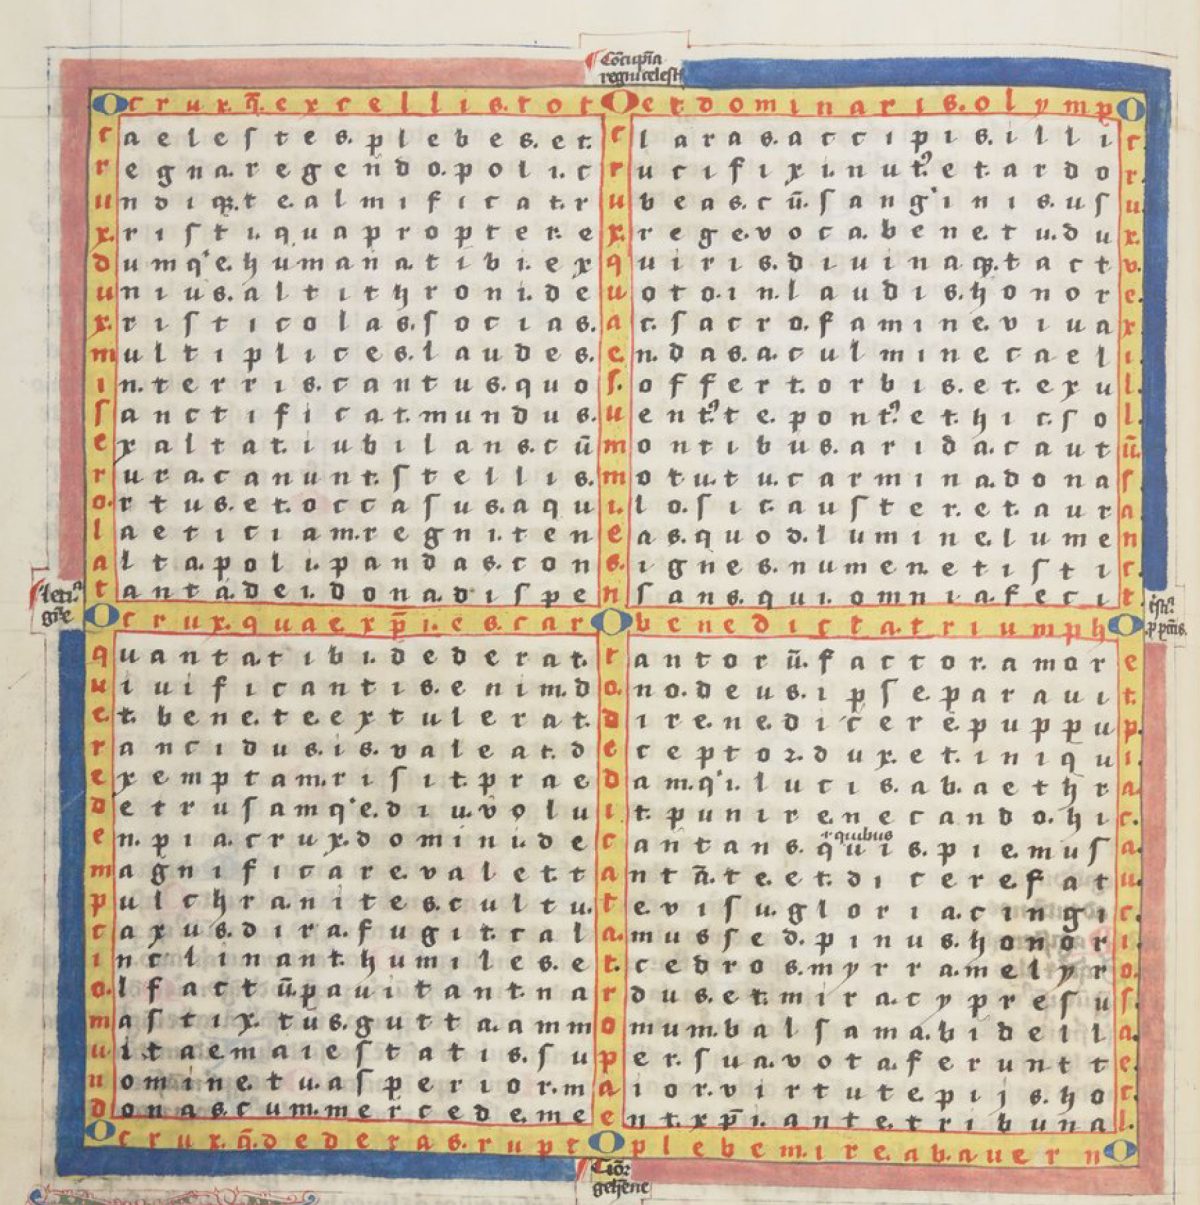 Cōcupīa
regni celest
O crux.q̄.excellis.tot O et dominaris.olymp O
c aelestes.plebes.et. c laras.accipis.illi c
r egna.regendo.poli.c r ucifixi.nut᷒.et ardo r
u ndiq3.te almificat.r u beas.cū.sang'inis.us u
x. risti.qua propter e x. rege.voca.bene tu.du x.
d umq'e.humana.tibi.ex q uiris.divinaq3.tact v
u nius.altithroni.de u oto.in.laudis.honor e
x. risticolas.socias. a c.sacro.famine.viua x
m ultiplices.laudes. e n.das.a.culmine cael i
i n.terris.cantus.quo s. offert.orbis.et.exu l
s anctificat.mundus. u ent᷒.te.pont᷒.et hic.so l
e xaltat.iubilans.cū m ontibus.arida.caut ū
r ura.canunt.stellis. m otu.tu.carmina.dona s
o. rtus.et.occasus.aqu i. lo.sic.auster.et aur a
l aeticiam.regni.ten e as.quod.lumine.lume n
a lta.poli.pandas.con s. ignes.numen.et isti c
t anta.dei.dona.dispe n sans.qui.omnia.feci t
leti.ᵃ
gn̄e
O crux.quae xp̄i.es.car O benedicta.triumph O
q uanta.tibi.dederat. t antorū.factor.amor e
u iuificantis.enim.d o. no.deus.ipse.parauit t.
e. t.bene.te extulerat. d irene.dicere puppu p
r ancidus.is.valeat.d e ceptor.dux.et.iniqu i.
e xemptam.risit.prae d am.q'i.lucis.ab.aethr a
d etrusamq'e.diu.volu i t.punire.necando.hi c.
e n.pia.crux.domini.de c antans.quis.pie.mus a
r quibus
m agnificare.valet.t a ntā.te.et.dicere.fat u
p ulchra nites.cultu. t e.visu.gloria.cingi c.
c axus.dira.fugit.cal a. mus sed.pinus.honor i
i nclinant.humiles.e t. cedros.myrra.melyr o.
o. lfactū.pauitant.na r dus.et.mira.cypresu s
m astix.tus.gutta.amm o mum.balsama.bdell a
u itae maiestatis.su p er.sua.vota.ferunt t e.
n omine.tuasperior.m a ior.virtute.pijs.ho c
d onas.cum.mercede.me e nt.xp̄i.ante.tribuna l.
O crux.q̄.dederas.rupt O plebem ire.ab.auern O
Tiōr
gehēne